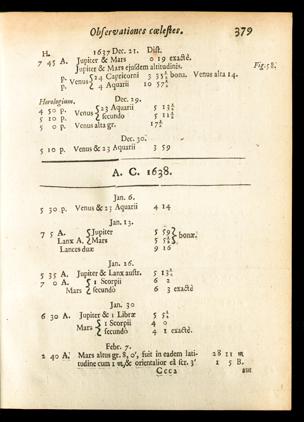 Observationes cœlestes. 379
H. 1637 Dec. 21. Dist.
7 45 A. Jupiter & Mars 0 19 exactè.
Jupiter & Mars ejusdem altitudinis. Fig. 58.
p. Venus { 24 Capricorni 3 35 bona. Venus alta 14.
p. { 4 Aquarii 10 57
Horologium. Dec. 29.
4 50 p. Venus { 23 Aquarii 5 13
5 10 p. { secundo 5 11
5 0 p. Venus alta gr. 17
Dec. 30.
5 10 p. Venus & 23 Aquarii 3 59
A. C. 1638.
Jan. 6.
5 30 p. Venus & 23 Aquarii 4 14
Jan. 13.
7 5 A. { Jupiter 5 59 } bonæ.
Lanx A. { Mars 5 5
Lances duæ 9 16
Jan. 26.
5 35 A. Jupiter & Lanx austr. 5 13
7 0 A. { 1 Scorpii 6 2
Mars { secundo 6 3 exactè
Jan. 30
6 30 A. Jupiter & 1 Libræ 5 5
Mars { 1 Scorpii 4 0
{ secundo 4 1 exactè.
Febr. 7.
2 40 A. Mars altus gr. 8, 0', fuit in eadem lati- 28 11 m
tudine cum 1 m, & orientalior eâ scr. 3'. 1 5 B.
Ccc2 aut